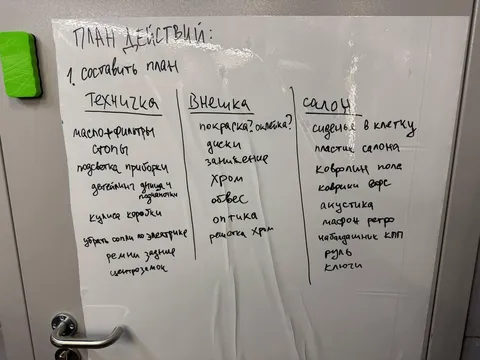 ПЛАН ДЕЙСТВИЙ:
1. СОСТАВИТЬ ПЛАН
ТЕХНИЧКА
масло+фильтры
стопы
подсветка приборки
детейлинг днища и
подкапотки
кулиса коробки
убрать сопли по электрике
ремни задние
центрозамок
ВНЕШКА
покраска? оклейка?
диски
занижение
хром
обвес
оптика
решотка хром
САЛОН
сиденья в клетку
пластик салона
ковролин пола
коврики
акустика
мафон ретро
набалдашник КПП
руль
ключи